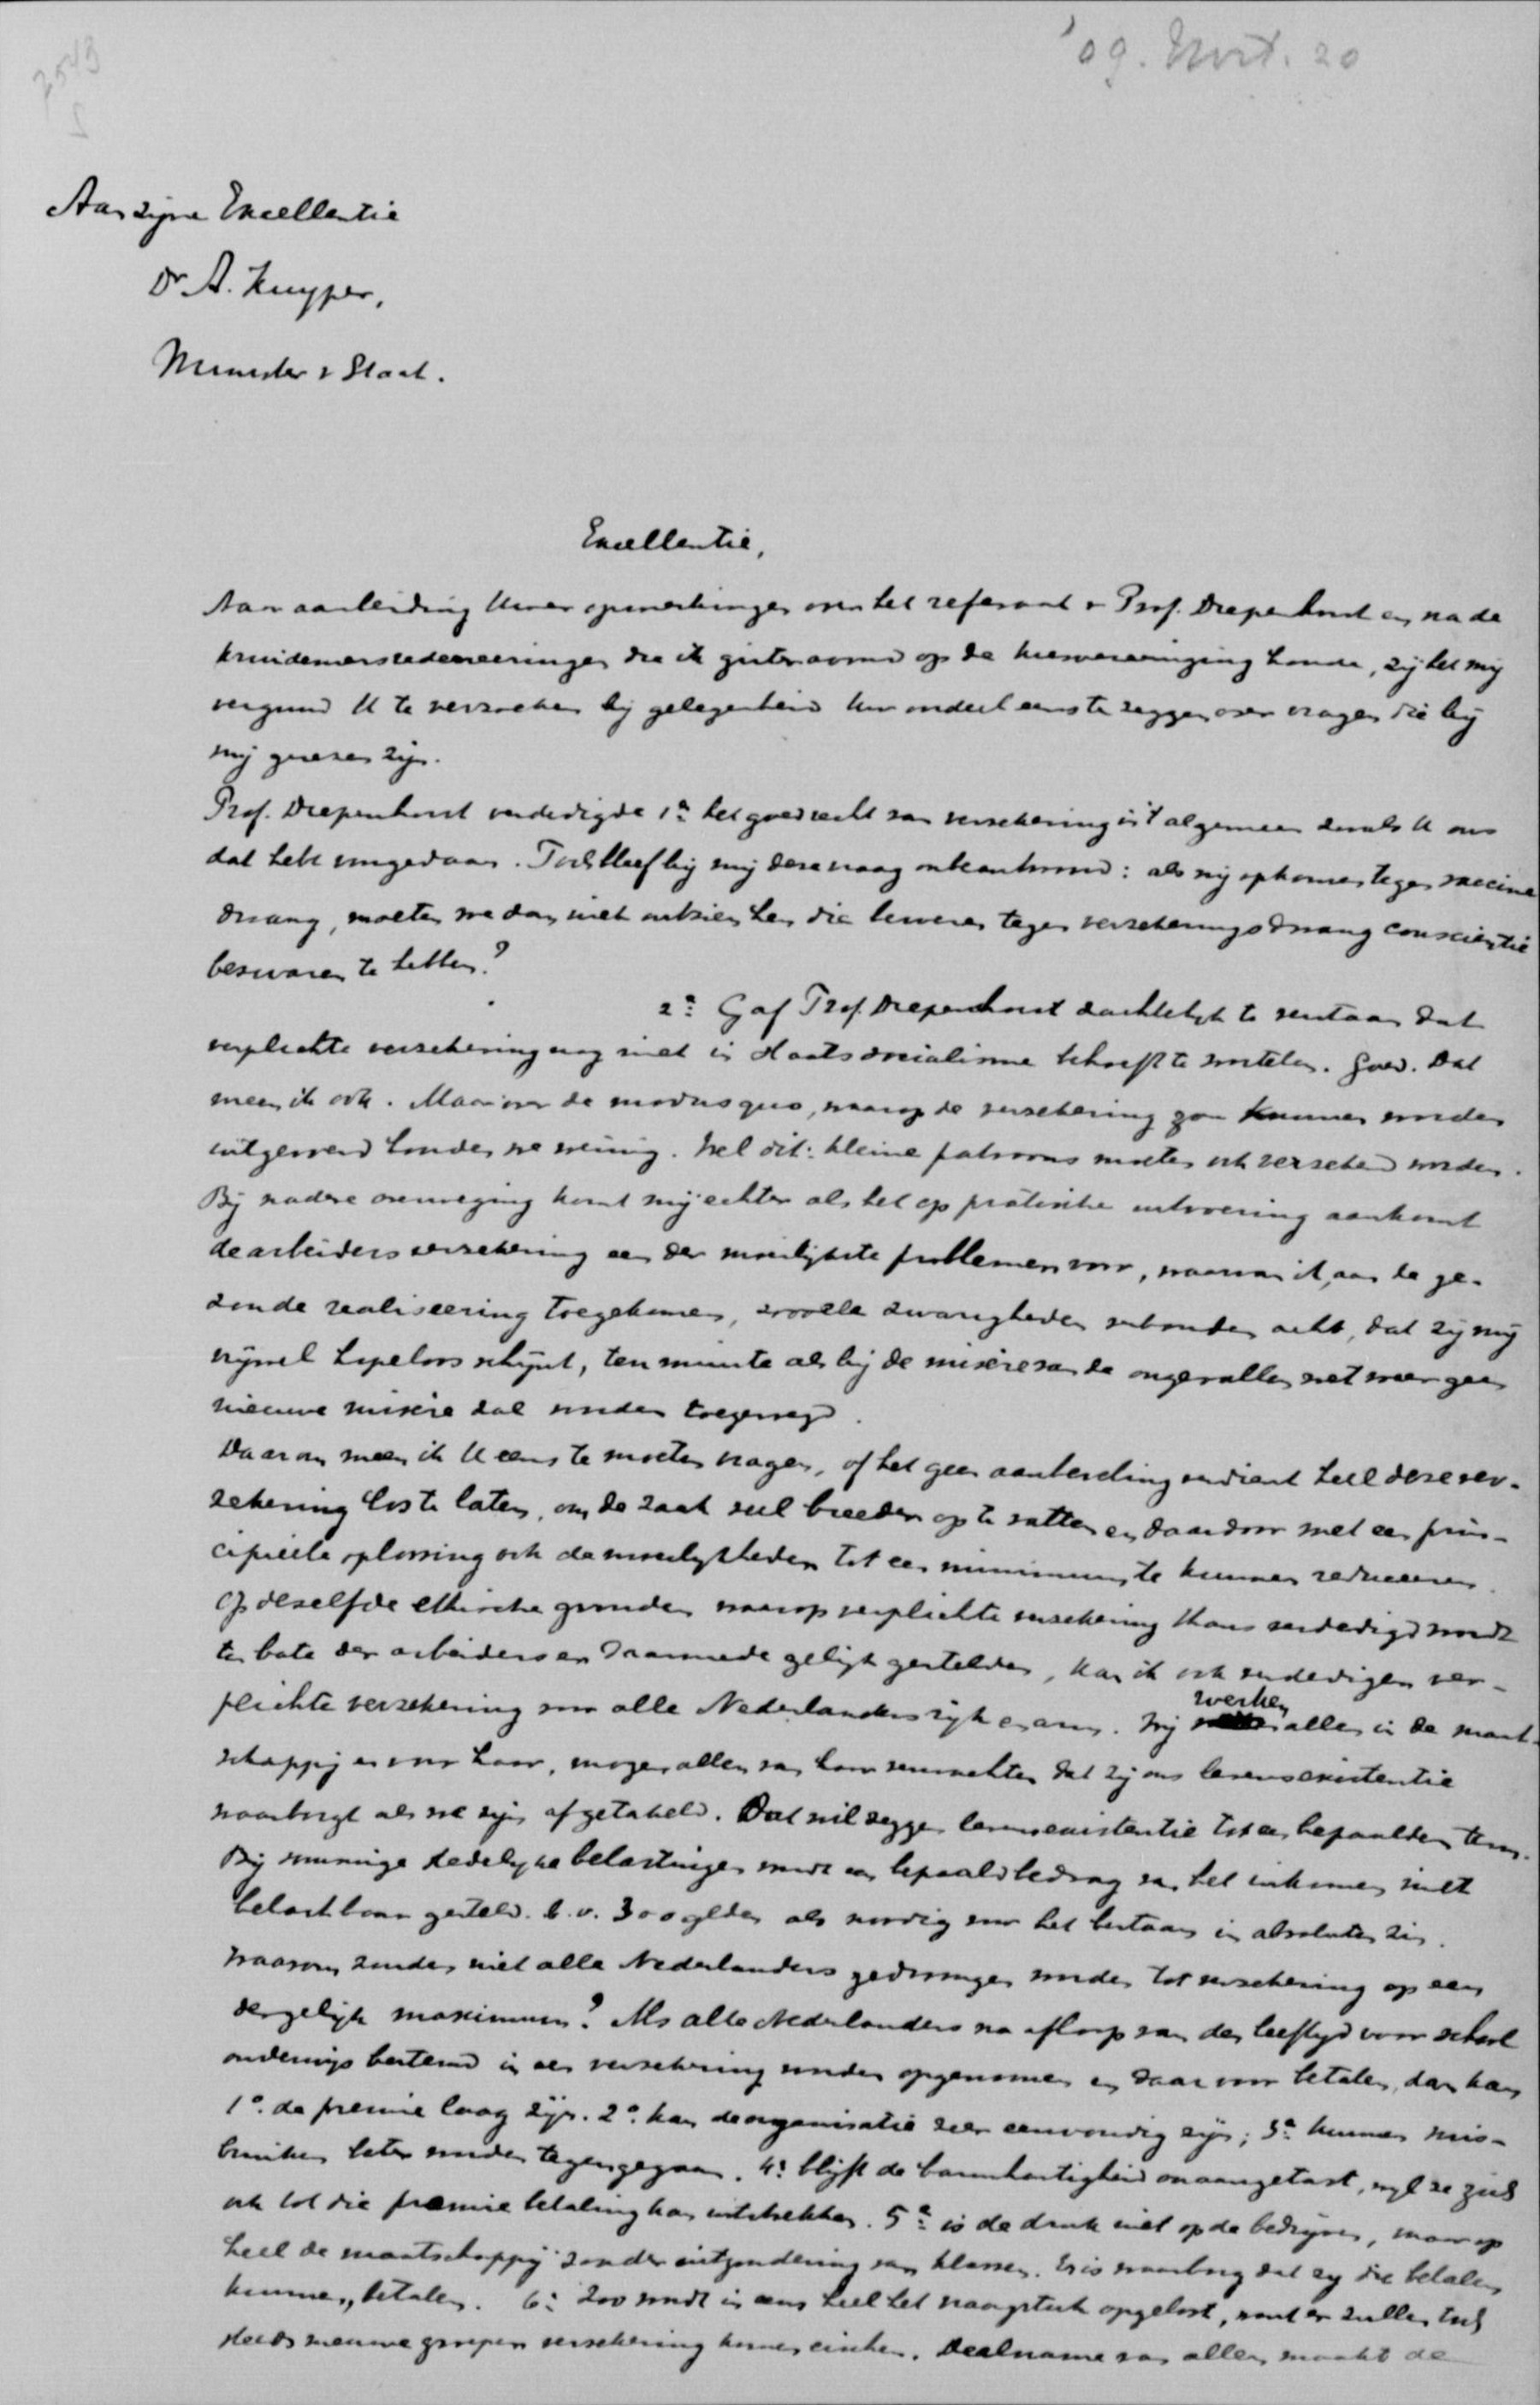 '09. Mrt. 20
7543
Aan zijne Excellentie
Dr A. Kuyper,
Minister v Staat.
Excellentie,
Naar aanleiding Uwer opmerkingen over het referaat v Prof. Diepenhorst en na de
kruideniersredeneeringen die ik gisteravond op de kiesvereeniging hoorde, zij het mij
vergund U te verzoeken bij gelegenheid Uw oordeel eens te zeggen over vragen die bij
mij gerezen zijn.
Prof. Diepenhorst verdedigde 1e het goed recht van verzekering in 't algemeen zooals U ons
dat hebt voorgedaan. Toch bleef bij mij deze vraag onbeantwoord: als wij opkomen tegen vaccine
dwang, moeten we dan niet ontzien hen die beweren tegen verzekeringsdwang conscientie
bezwaren te hebben?
2e Gaf Prof. Diepenhorst duidelijk te verstaan dat
verplichte verzekering nog niet in staatssocialisme behoeft te wortelen. Goed. Dat
meen ik ook. Maar over de modus quo, waarop de verzekering zou kunnen worden
uitgevoerd hoorden we weinig. Wel dit: kleine patroons moeten ook verzekerd worden.
Bij nadere overweging komt mij echter als het op praktische uitvoering aankomt
de arbeidersverzekering een der moeilijkste problemen voor, waarvan ik, aan de ge-
zonde realiseering toegekomen, zooveele zwarigheden verbonden acht, dat zij mij
vrijwel hopeloos schijnt, ten minste als bij de misère van de ongevallen wet weer geen
nieuwe misère zal worden toegevoegd.
Daarom meen ik U eens te moeten vragen, of het geen aanbeveling verdient heel deze ver-
zekering los te laten, om de zaak veel breeder op te vatten en daardoor met een prin-
cipieele oplossing ook de moeilijkheden tot een minimum te kunnen reduceeren.
Op dezelfde ethische gronden waarop verplichte verzekering thans verdedigd wordt
ten bate der arbeiders en daarmede gelijk gestelden, kan ik ook verdedigen ver-
plichte verzekering voor alle Nederlanders rijk en arm. Wij werken allen in de maat-
schappij en voor haar, mogen allen van haar verwachten dat zij ons levensexistentie
waarborgt als we zijn afgetakeld. Dat wil zeggen levensexistentie tot een bepaalden term.
Bij sommige stedelijke belastingen wordt een bepaald bedrag van het inkomen niet
belastbaar gesteld. b.v. 300 gulden als noodig voor het bestaan in absoluten zin.
Waarom zouden niet alle Nederlanders gedwongen worden tot verzekering op een
dergelijk maximum? Als alle Nederlanders na afloop van den leeftijd voor school
onderwijs bestemd in een verzekering worden opgenomen en daarvoor betalen, dan kan
1e. de premie laag zijn. 2e. kan de organisatie zeer eenvoudig zijn; 3e kunnen mis-
bruiken beter worden tegengegaan. 4e blijft de barmhartigheid onaangetast, wijl ze zich
ook tot die premie betaling kan uitstrekken. 5e is de druk niet op de bedrijven, maar op
heel de maatschappij zonder uitzondering van klassen. Er is waarborg dat zij die betalen
kunnen, betalen. 6e Zoo wordt in eens heel het vraagstuk opgelost, want er zullen toch
steeds nieuwe groepen verzekering komen eischen. Deelname van allen maakt de